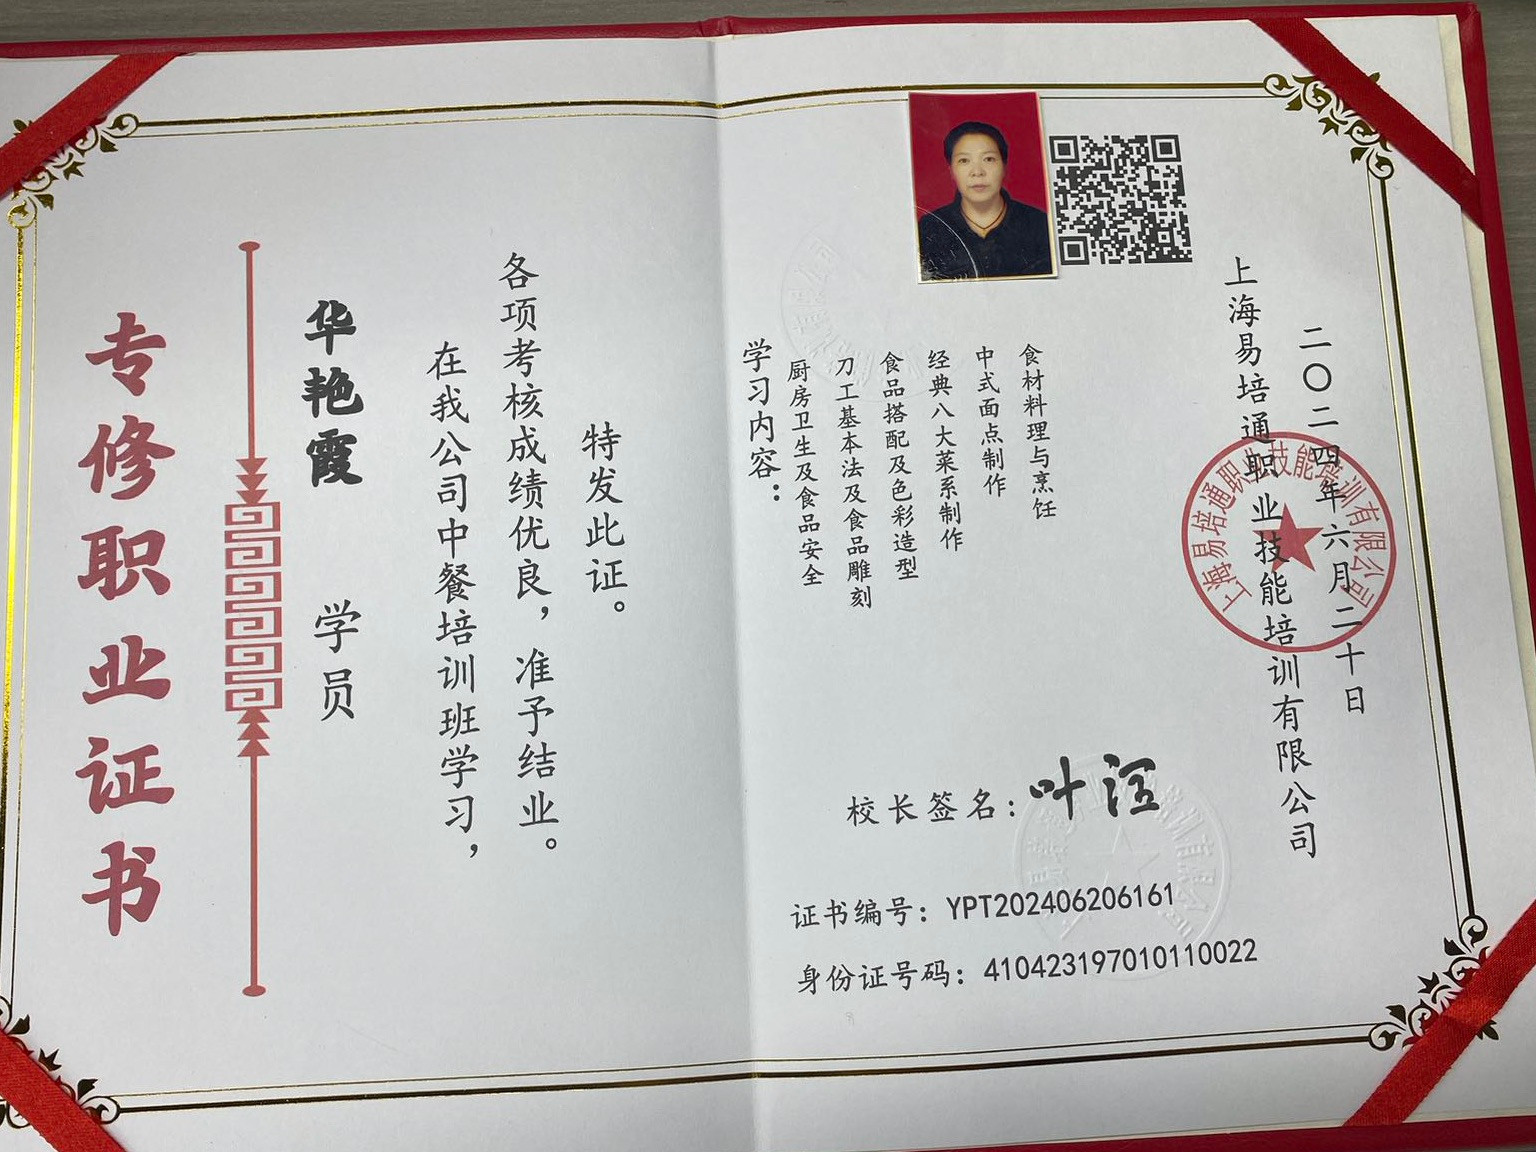 专修职业证书
华艳霞 学员
在我公司中餐培训班学习，
各项考核成绩优良，准予结业。
特发此证。
学习内容：
厨房卫生及食品安全
刀工基本法及食品雕刻
食品搭配及色彩造型
经典八大菜系制作
中式面点制作
食材料理与烹饪
上海易培通职业技能培训有限公司
二〇二四年六月二十日
上海易培通职业技能培训有限公司
校长签名：
证书编号：YPT202406206161
身份证号码：410423197010110022